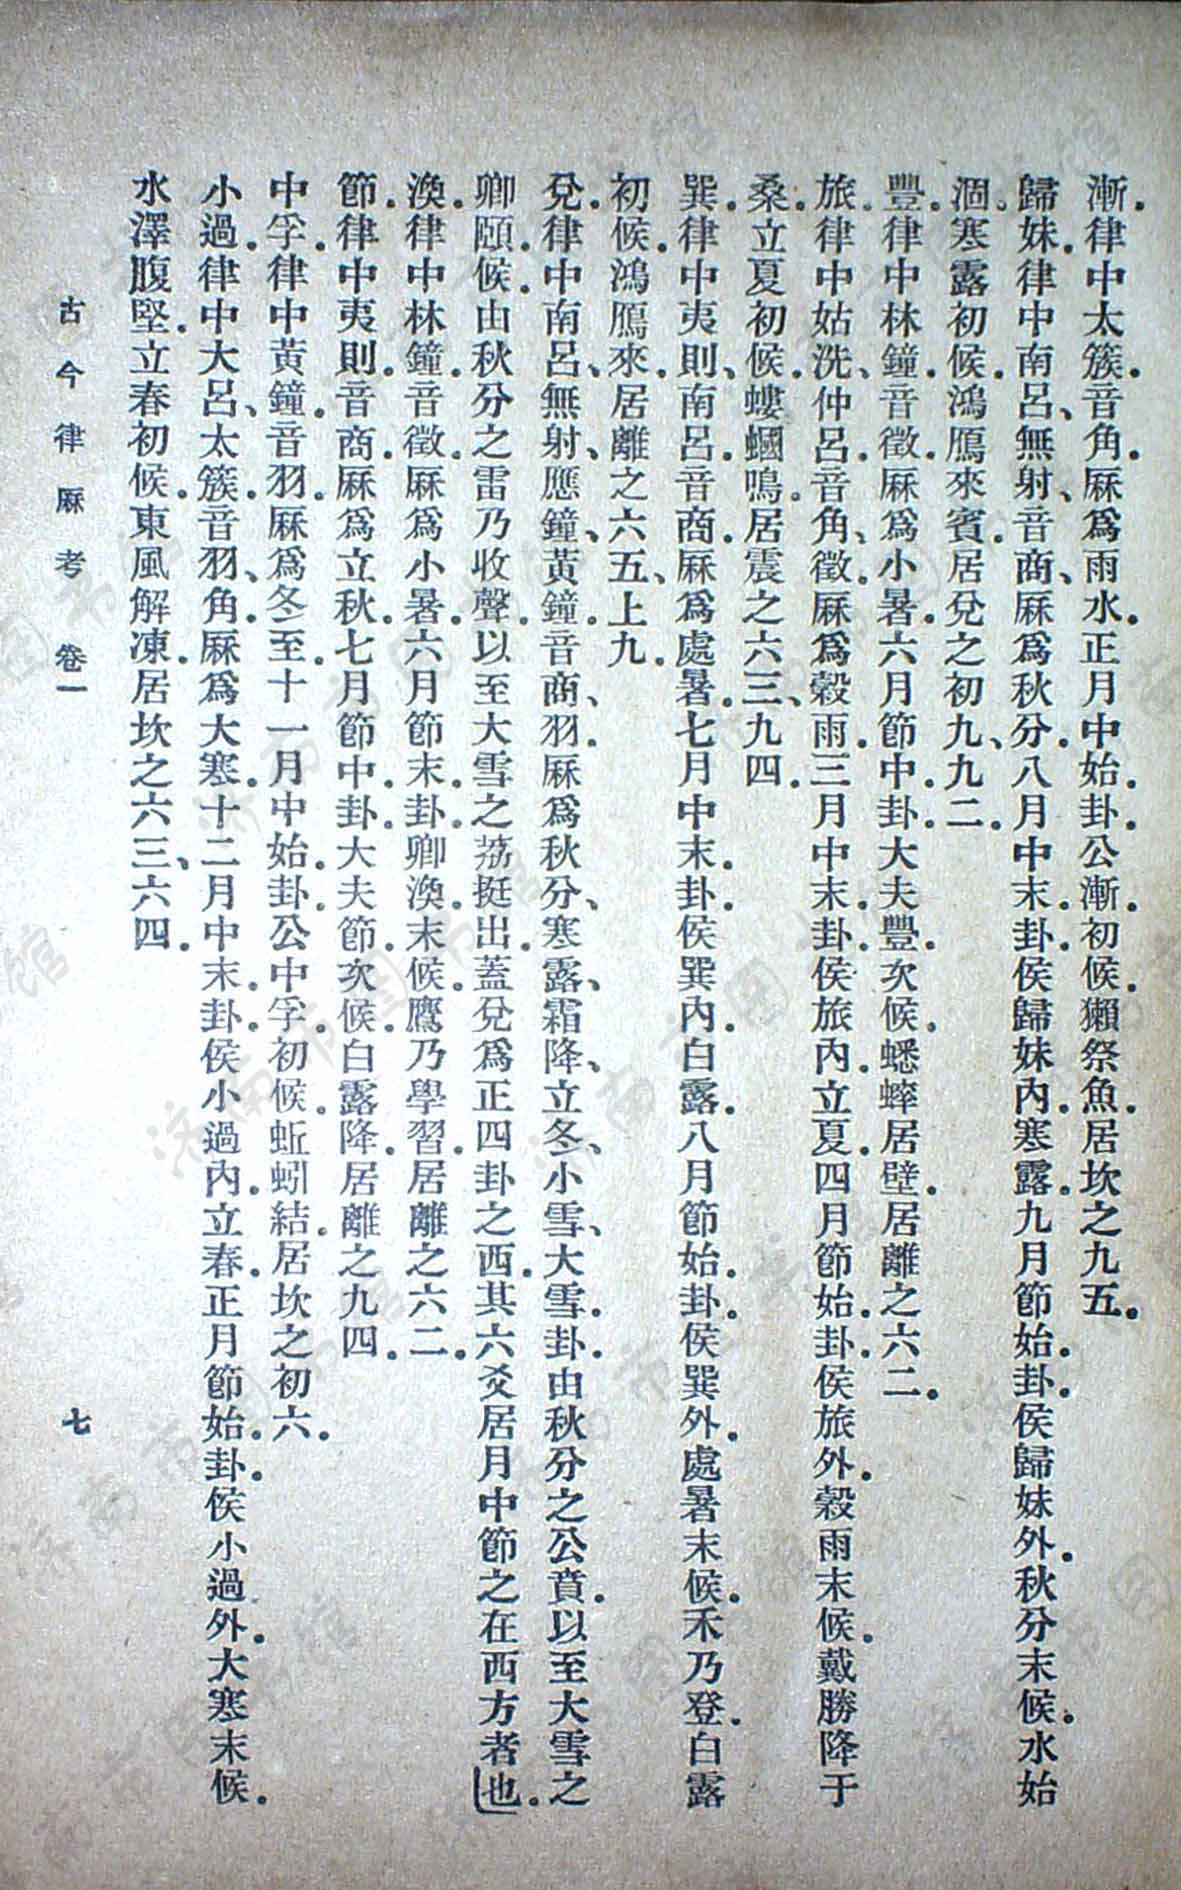 漸。律中太簇。音角。厤爲雨水。正月中始。卦。公漸。初候。獺祭魚。居坎之九五。
歸妹。律中南呂、無射、音商、厤爲秋分。八月中末。卦。侯歸妹內。寒露。九月節始。卦。侯歸妹外。秋分末候。水始
涸。寒露初候。鴻鴈來賓。居兌之初九、九二。
豐。律中林鐘。音徵。厤爲小暑。六月節中。卦。大夫豐。次候。蟋蟀居壁。居離之六二。
旅。律中姑洗、仲呂。音角、徵。厤爲穀雨。三月中末。卦。侯旅內。立夏。四月節始。卦。侯旅外。穀雨末候。戴勝降于
桑。立夏初候。螻蟈鳴。居震之六三、九四。
巽。律中夷則、南呂。音商。厤爲處暑。七月中末。卦。侯巽內。白露。八月節始。卦。侯巽外。處暑末候。禾乃登。白露
初候。鴻鴈來。居離之六五、上九。
兌。律中南呂、無射、應鐘、黃鐘。音商、羽。厤爲秋分、寒露、霜降、立冬、小雪、大雪。卦。由秋分之公賁。以至大雪之
卿頤。候。由秋分之雷乃收聲。以至大雪之荔挺出。蓋兌爲正四卦之西。其六爻居月中節之在西方者也。
渙。律中林鐘。音徵。厤爲小暑。六月節末。卦。卿渙。末候。鷹乃學習。居離之六二。
節。律中夷則。音商。厤爲立秋。七月節中。卦。大夫節。次候。白露降。居離之九四。
中孚。律中黃鐘。音羽。厤爲冬至。十一月中始。卦。公中孚。初候。蚯蚓結。居坎之初六。
小過。律中大呂、太簇。音羽、角。厤爲大寒。十二月中末。卦。侯小過內。立春。正月節始。卦。侯小過外。大寒末候。
水澤腹堅。立春初候。東風解凍。居坎之六三、六四。
古今律厤考 卷一 七